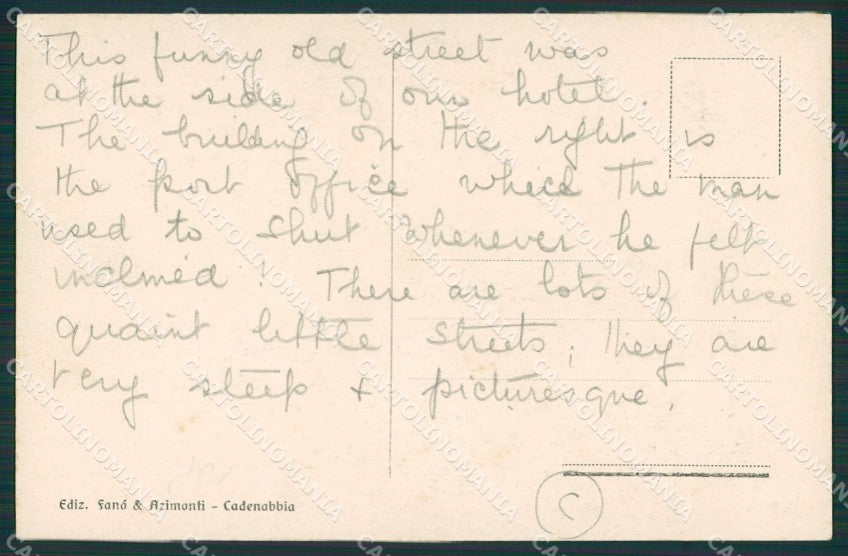 This funny old street was
at the side of our hotel.
The building on the right is
the post office which the man
used to shut whenever he felt
inclined. There are lots of these
quaint little streets; they are
very steep + picturesque.
Ediz. Fanó & Azimonti - Cadenabbia
C
CARTOLINOMANIA